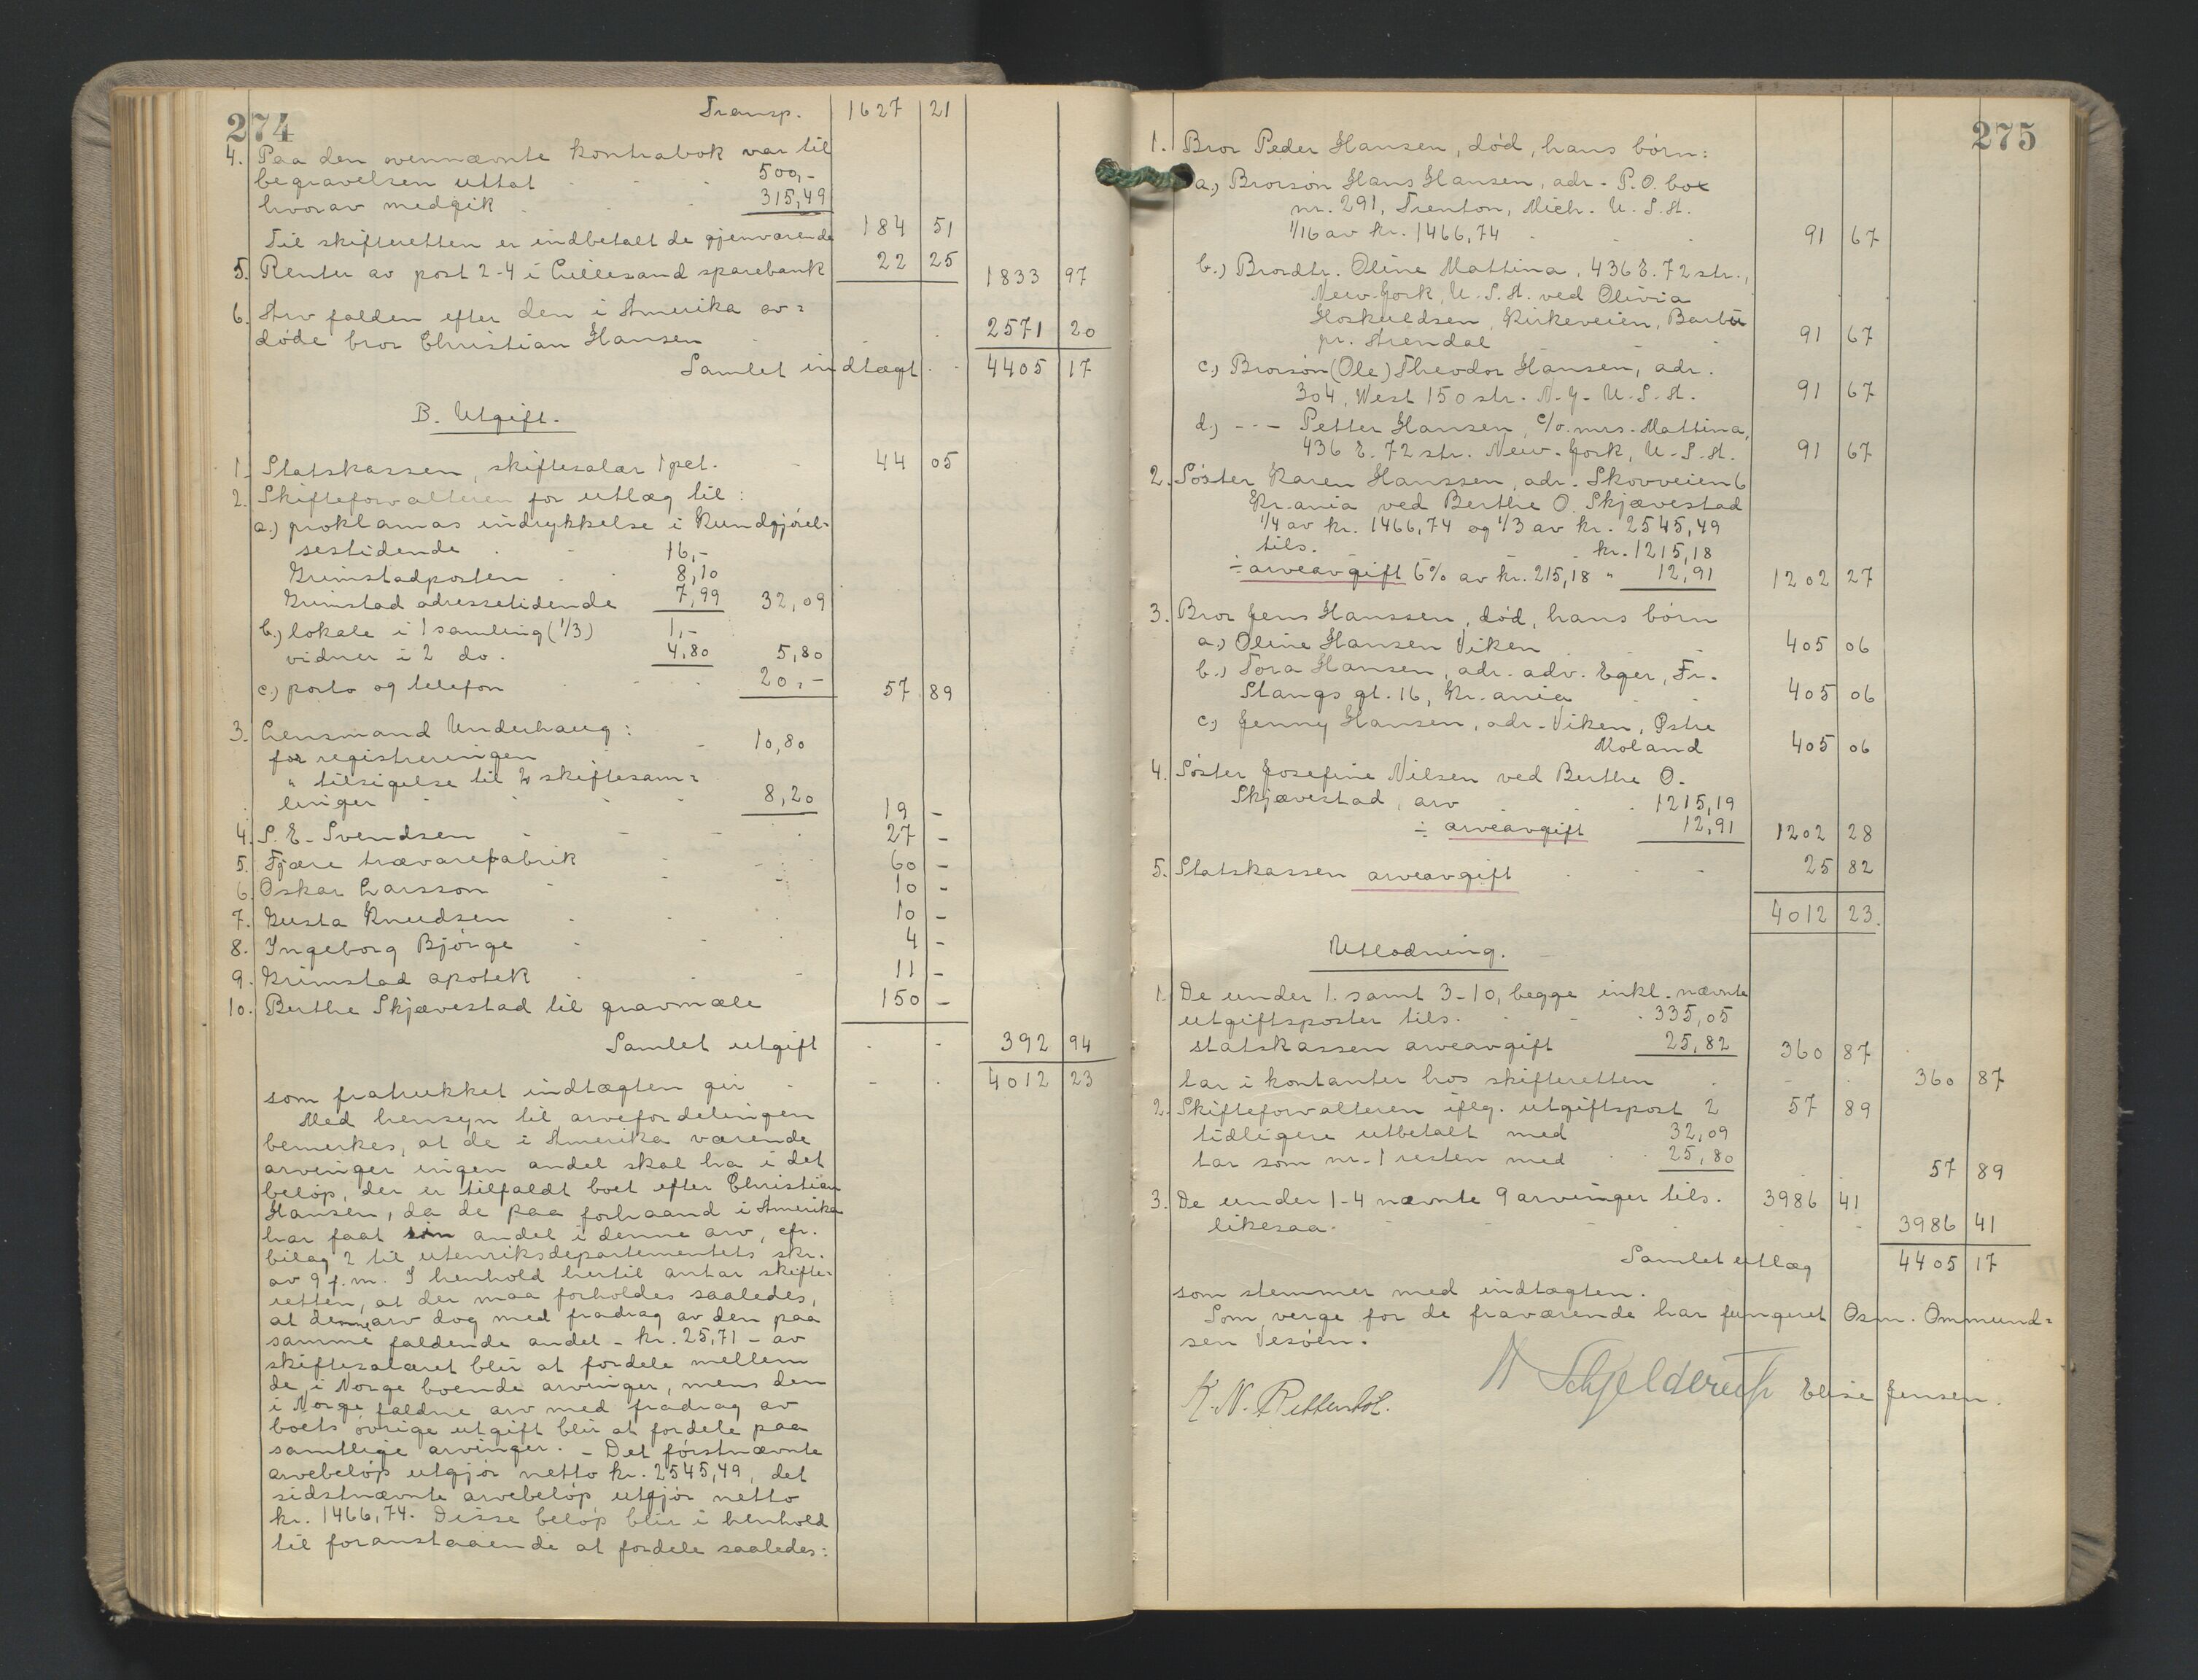 274
Transp. 1627 21
4. Paa den ovennævnte kontrabok var til
begravelsen uttat 500,-
hvorav medgik 315,49
Til skifteretten er indbetalt de gjenværende 184 51
5. Renter av post 2-4 i Lillesand sparebank 22 25 1833 97
6. Arv falden efter den i Amerika av=
døde bror Christian Hansen 2571 20
Samlet indtægt 4405 17
B. Utgift.
1. Statskassen, skiftesalær 1 pct. 44 05
2. Skifteforvalteren for utlæg til:
a.) proklamas indrykkelse i Kundgjörel-
sestidende 16,-
Grimstadposten 8,10
Grimstad adressetidende 7,99 32,09
b.) lokale i 1 samling (1/3) 1,-
vidner i 2 do. 4,80 5,80
c.) porto og telefon 20,- 57 89
3. Lensmand Underhaug:
for registreringen 10,80
" tilsigelse til 2 skiftesam=
linger 8,20 19 -
4. S. E. Svendsen 27 -
5. Fjære trævarefabrik 60 -
6. Oskar Larsson 10 -
7. Gusta Knudsen 10 -
8. Ingeborg Bjørge 4 -
9. Grimstad apotek 11 -
10. Berthe Skjævestad til gravmæle 150 -
Samlet utgift 392 94
som fratrukket indtægten gir 4012 23
Med hensyn til arvefordelingen
bemerkes, at de i Amerika værende
arvinger ingen andel skal ha i det
beløp, der er tilfaldt boet efter Christian
Hansen, da de paa forhaand i Amerika
har faat sin andel i denne arv, cfr.
bilag 2 til utenriksdepartementets skr.
av 9 f.m. I henhold hertil antar skifte-
retten, at der maa forholdes saaledes,
at denne arv dog med fradrag av den paa
samme faldende andel - kr. 25,71 - av
skiftesalæret blir at fordele mellem
de i Norge boende arvinger, mens den
i Norge faldne arv med fradrag av
boets øvrige utgift blir at fordele paa
samtlige arvinger. - Det førstnævnte
arvebeløp utgjør netto kr. 2545,49, det
sidstnævnte arvebeløp utgjør netto
kr. 1466,74. Disse beløp blir i henhold
til foranstaaende at fordele saaledes:
275
1. Bror Peder Hansen, død, hans børn:
a.) Brorsøn Hans Hansen, adr. P.O. box
nr. 291, Trenton, Mich. U.S.A.
1/16 av kr. 1466,74 91 67
b.) Brordtr. Oline Mattina, 436 E. 72 str.,
New-York, U.S.A. ved Olivia
Hoskuldsen, Kirkeveien, Barbu
pr. Arendal 91 67
c.) Brorsøn (Ole) Theodor Hansen, adr.
304, West 150 str. N.Y. U.S.A. 91 67
d.) - - - Petter Hansen, c/o. mrs. Mattina,
436 E. 72 str. New-York, U.S.A. 91 67
2. Søster Karen Hanssen, adr. Skovveien 6
Kr.ania ved Berthe O. Skjævestad
1/4 av kr. 1466,74 og 1/3 av kr. 2545,49
tils. kr. 1215,18
÷ arveavgift 6% av kr. 215,18 " 12,91 1202 27
3. Bror Jens Hanssen, død, hans børn
a.) Oline Hansen Viken 405 06
b.) Tora Hansen, adr. adv. Eger, Fr.
Stangs gt. 16, Kr.ania 405 06
c.) Jenny Hansen, adr. Viken, Østre
Moland 405 06
4. Søster Josefine Nilsen ved Berthe O.
Skjævestad, arv 1215,19
÷ arveavgift 12,91 1202 28
5. Statskassen arveavgift 25 82
4012 23.
Utlodning.
1. De under 1. samt 3-10, begge inkl. nævnte
utgiftsposter tils. 335,05
statskassen arveavgift 25,82 360 87
tar i kontanter hos skifteretten 360 87
2. Skifteforvalteren iflg. utgiftspost 2 57 89
tidligere utbetalt med 32,09
tar som nr. 1 resten med 25,80 57 89
3. De under 1-4 nævnte 9 arvinger tils. 3986 41
likesaa. 3986 41
Samlet utlæg 4405 17
som stemmer med indtægten.
Som verge for de fraværende har fungeret Osm. Ommund=
sen Vesøen.
Schjelderup Elise Jensen.
K. N. Pettersbøl.